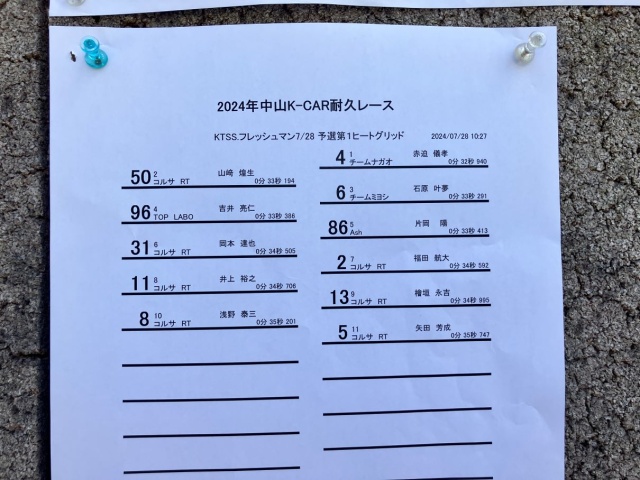 2024年中山K-CAR耐久レース
KTSS.フレッシュマン7/28 予選第1ヒートグリッド 2024/07/28 10:27
4 1 チームナガオ 赤迫 儀孝 0分 32秒 940
50 2 コルサ RT 山﨑 煌生 0分 33秒 194
6 3 チームミヨシ 石原 叶夢 0分 33秒 291
96 4 TOP LABO 吉井 亮仁 0分 33秒 386
86 5 Ash 片岡 陽 0分 33秒 413
31 6 コルサ RT 岡本 達也 0分 34秒 505
2 7 コルサ RT 福田 航大 0分 34秒 592
11 8 コルサ RT 井上 裕之 0分 34秒 706
13 9 コルサ RT 檜垣 永吉 0分 34秒 995
8 10 コルサ RT 浅野 泰三 0分 35秒 201
5 11 コルサ RT 矢田 芳成 0分 35秒 747